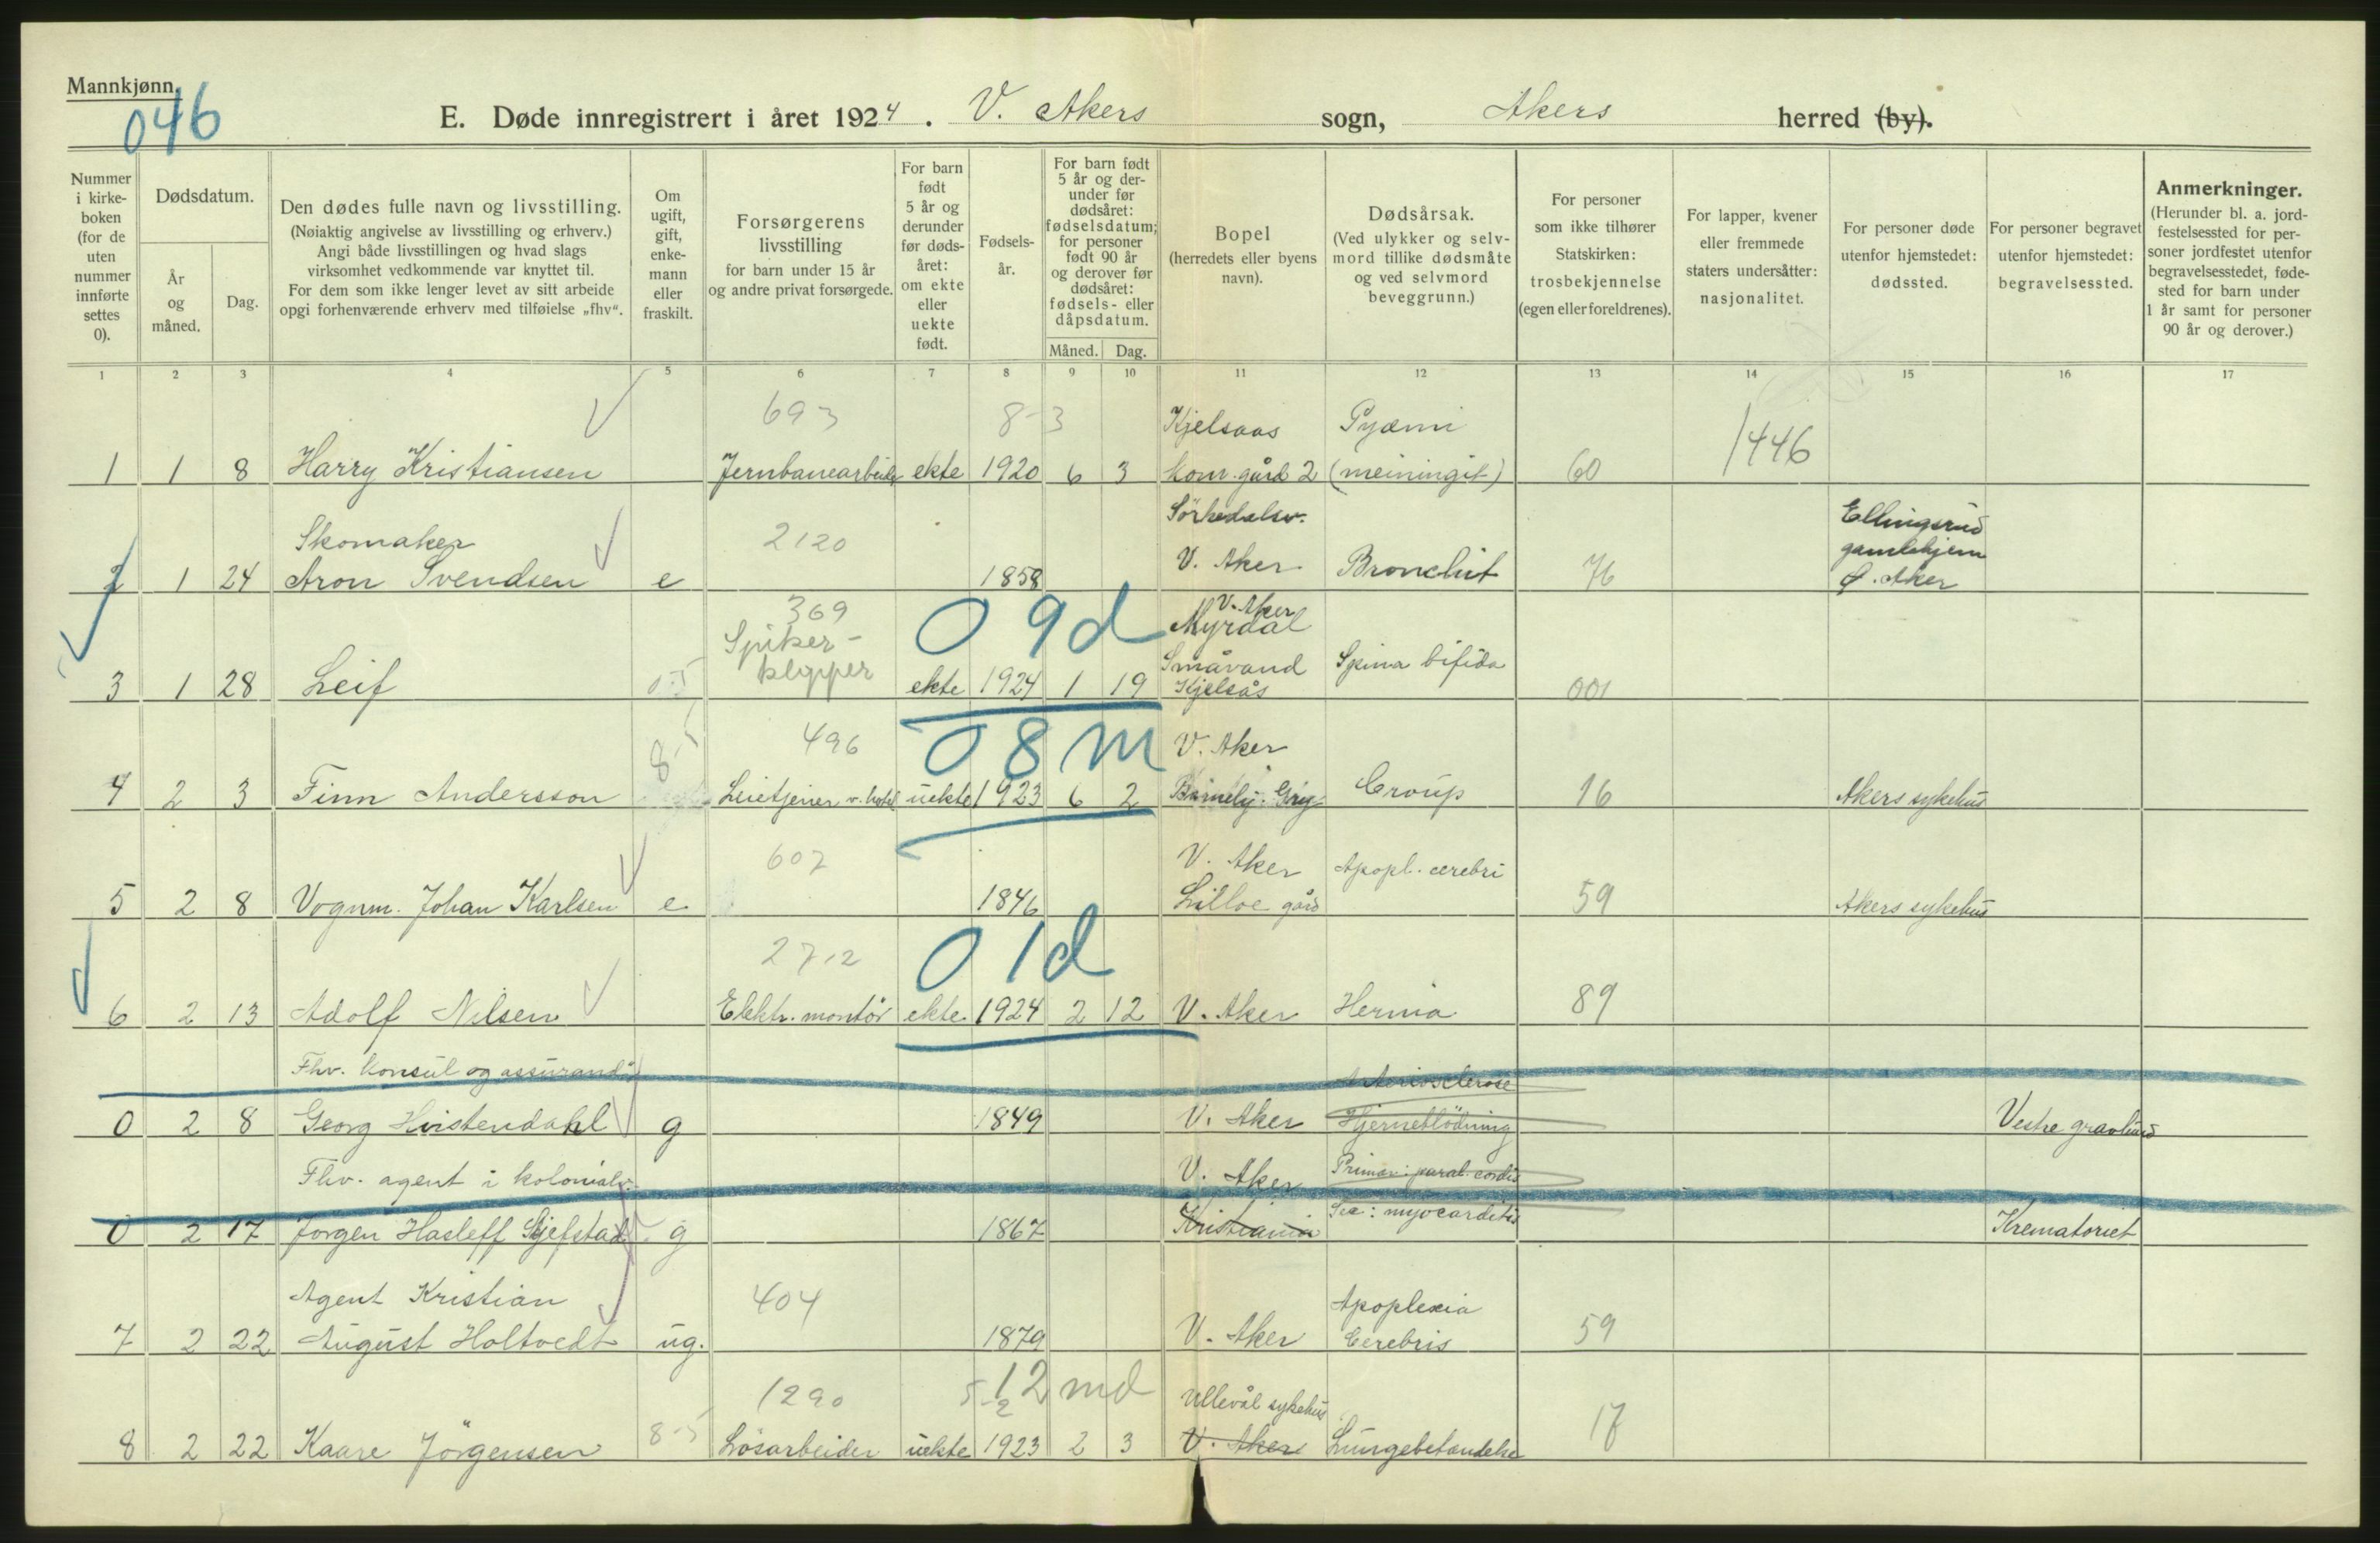 Mannkjønn.
046
E. Døde innregistrert i året 1924. V. Akers sogn, Akers herred (by).
Nummer i kirkeboken (for de uten nummer innførte settes 0).
Dødsdatum.
År og måned.
Dag.
Den dødes fulle navn og livsstilling.
(Nøiaktig angivelse av livsstilling og erhverv.)
Angi både livsstillingen og hvad slags
virksomhet vedkommende var knyttet til.
For dem som ikke lenger levet av sitt arbeide
opgi forhenværende erhverv med tilføielse „fhv“.
Om ugift, gift, enkemann eller fraskilt.
Forsørgerens livsstilling
for barn under 15 år
og andre privat forsørgede.
For barn født 5 år og derunder før dødsåret: om ekte eller uekte født.
Fødselsår.
For barn født 5 år og derunder før dødsåret: fødselsdatum; for personer født 90 år og derover før dødsåret: fødsels- eller dåpsdatum.
Måned. Dag.
Bopel
(herredets eller byens navn).
Dødsårsak.
(Ved ulykker og selvmord tillike dødsmåte og ved selvmord beveggrunn.)
For personer som ikke tilhører Statskirken: trosbekjennelse (egen eller foreldrenes).
For lapper, kvener eller fremmede staters undersåtter: nasjonalitet.
For personer døde utenfor hjemstedet: dødssted.
For personer begravet utenfor hjemstedet: begravelsessted.
Anmerkninger.
(Herunder bl. a. jordfestelsessted for personer jordfestet utenfor begravelsesstedet, fødested for barn under 1 år samt for personer 90 år og derover.)
1 2 3 4 5 6 7 8 9 10 11 12 13 14 15 16 17
693 8-3 Kjelsaas Pyæmi 1446
1 1 8 Harry Kristiansen Jernbanearbeider ekte 1920 6 3 kom. gård 2 (meiningit) 60
Skomaker 2120 Sörkedalsv. Ellingsrud gamlehjem
2 1 24 Aron Svendsen e 1858 V. Aker Bronchit 76 Ø. Aker
369 09d V. Aker Myrdal
Spiker-
klipper Småvand Spina bifida
3 1 28 Leif ekte 1924 1 19 Kjelsås 001
8-5 496 08m V. Aker
4 2 3 Finn Andersson Leietjener v. hotel uekte 1923 6 2 Croup 16 Akers sykehus
607 V. Aker Apopl. cerebri
5 2 8 Vognm. Johan Karlsen e 1846 Lilloe gård 59 Akers sykehus
2712 01d
6 2 13 Adolf Nilsen Elektr. montör ekte 1924 2 12 V. Aker Hernia 89
Fhv. konsul og assurandör Arteriosclerose
0 2 8 Georg Hvistendahl g 1849 V. Aker Hjerneblödning Vestre gravlund
Fhv. agent i kolonialv. V. Aker Primær: paral. cordis
0 2 17 Jörgen Hasleff Skjefstad g 1867 Kristiania Sec: myocarditis Krematoriet
Agent Kristian 404 Apoplexia
7 2 22 August Holtvedt ug. 1879 V. Aker Cerebris 59
1290 5-2 12 md Ullevål sykehus
8 2 22 Kaare Jörgensen 8-5 Lösarbeider uekte 1923 2 3 V. Aker Lungebetændelse 17